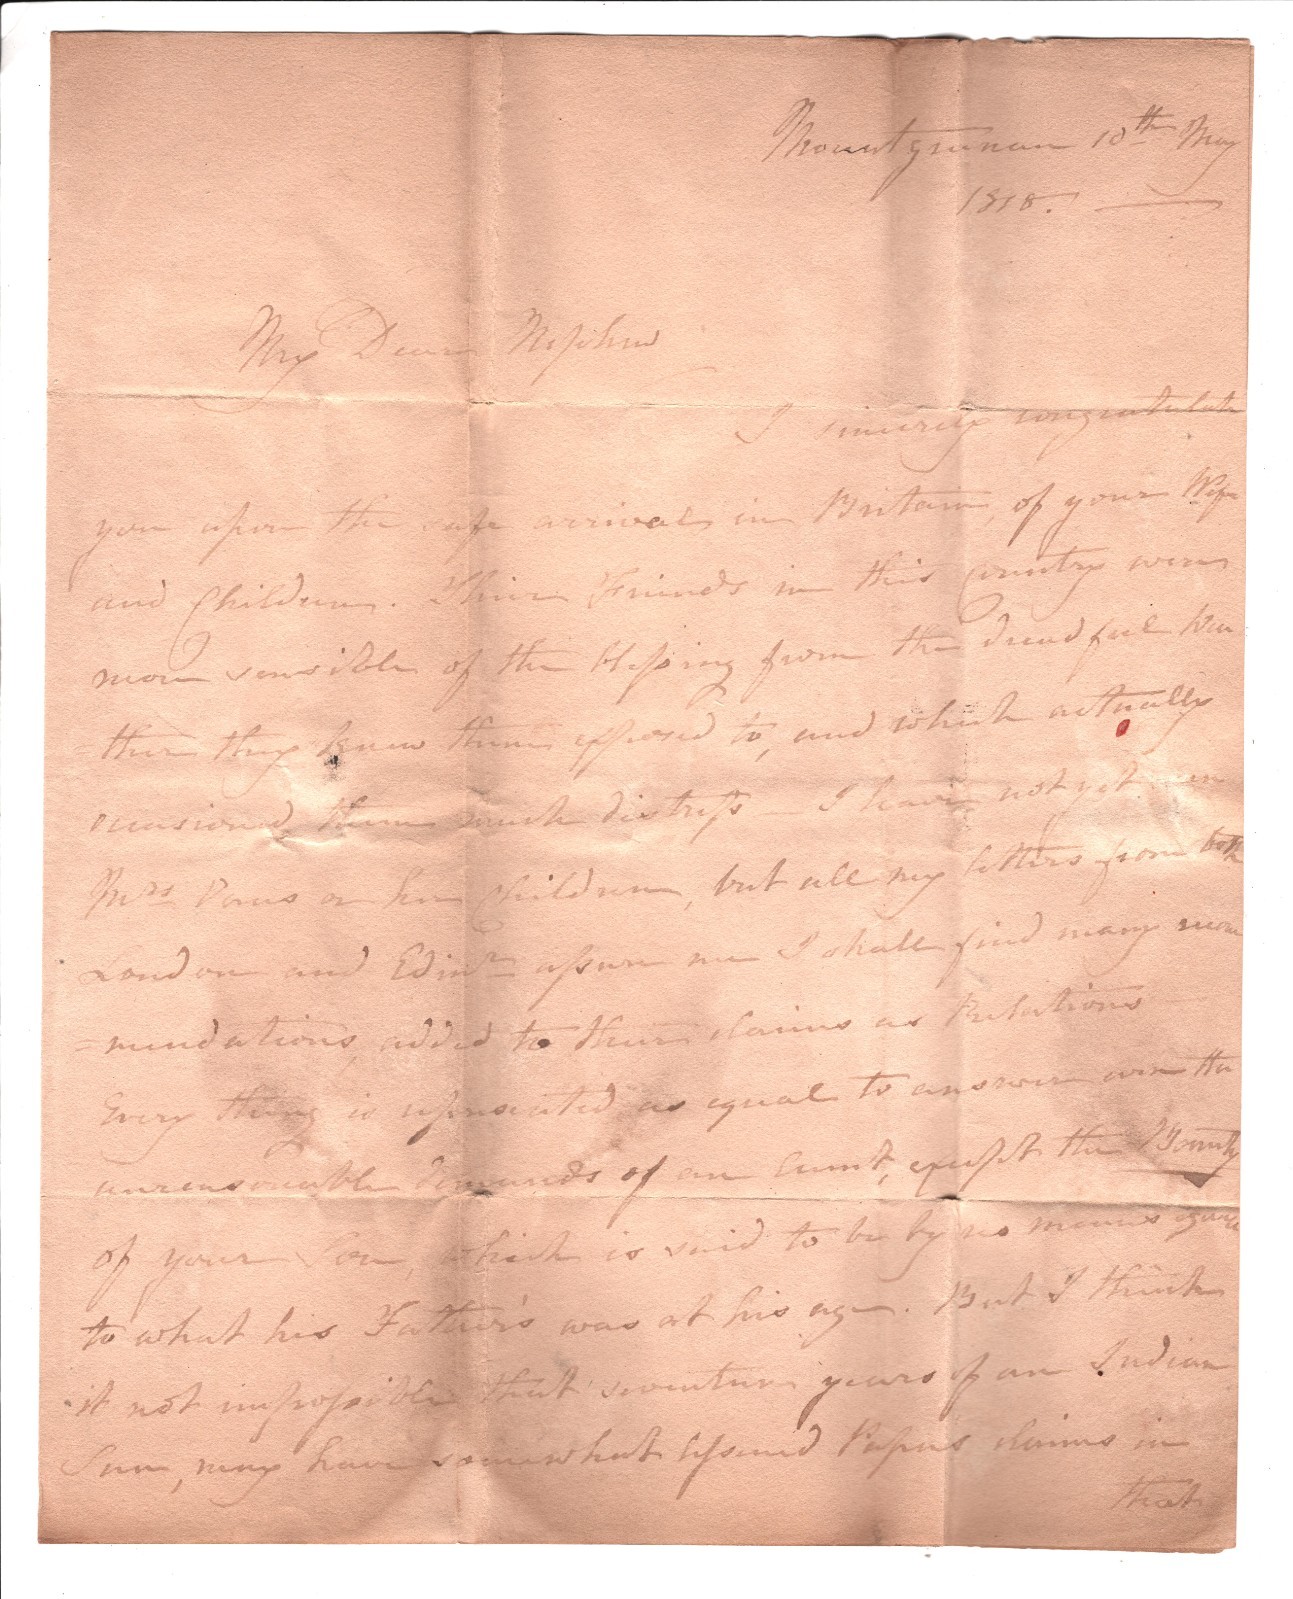 Mountgrenan 10th May
1818.
My Dear Nephew
I sincerely congratulate
you upon the safe arrival in Britain, of your Wife
and Children. Their Friends in this Country were
more sensible of the blessing from the dreadful wea
=ther they knew them exposed to, and which actually
occasioned them much distress – I have not yet seen
Mrs or her Children, but all my letters from both
London and Edinr assure me I shall find many recom
=mendations, added to their claims as Relations –
Every thing is represented as equal to answer even the
unreasonable demands of an Aunt, except the Beauty
of your Son, which is said to be by no means equal
to what his Father's was at his age. But I think
it not impossible that seventeen years of an Indian
Sun, may have somewhat lessened Papa's claims in
that